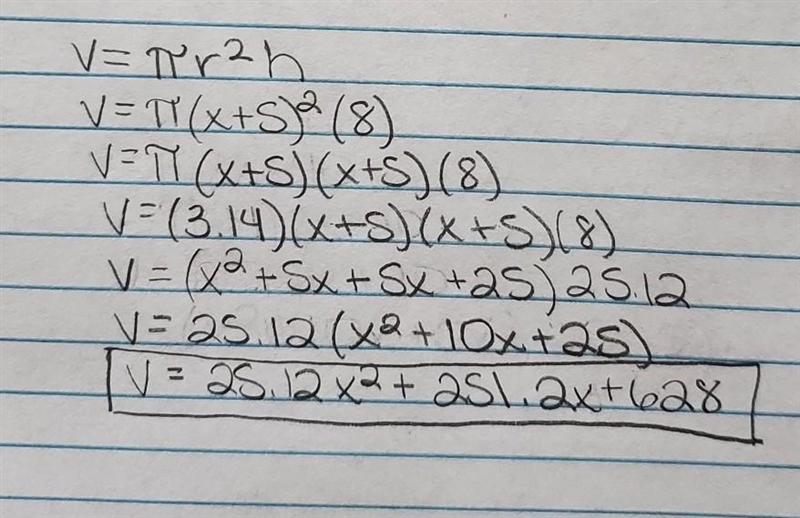 V = πr²h
V = π(x+5)²(8)
V = π(x+5)(x+5)(8)
V = (3.14)(x+5)(x+5)(8)
V = (x²+5x+5x+25)25.12
V = 25.12(x²+10x+25)
V = 25.12x²+251.2x+628